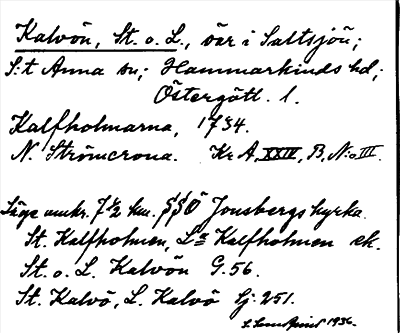 Kalvön, St. o. L., öar i Saltsjön;
S:t Anna sn; Hammarkinds hd;
Östergötl. l.
Kalfholmarna, 1734.
N. Strömcrona. Kr A, XXIV, B, N:o III.
Läge omkr. 7 1/2 km. SSÖ Jonsbergs kyrka.
St. Kalfholmen, La Kalfholmen ek.
St. o. L. Kalvön G. 56.
St. Kalvö, L. Kalvö Sj. 251.
1936.